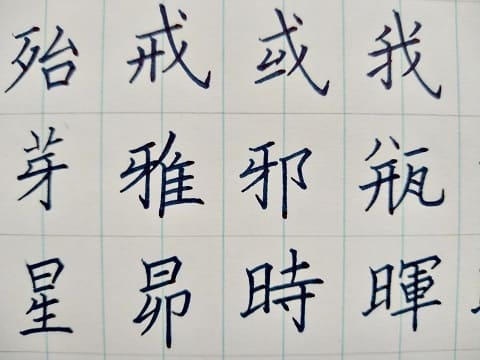 殆戒或我
芽雅邪瓶
星昴時暉